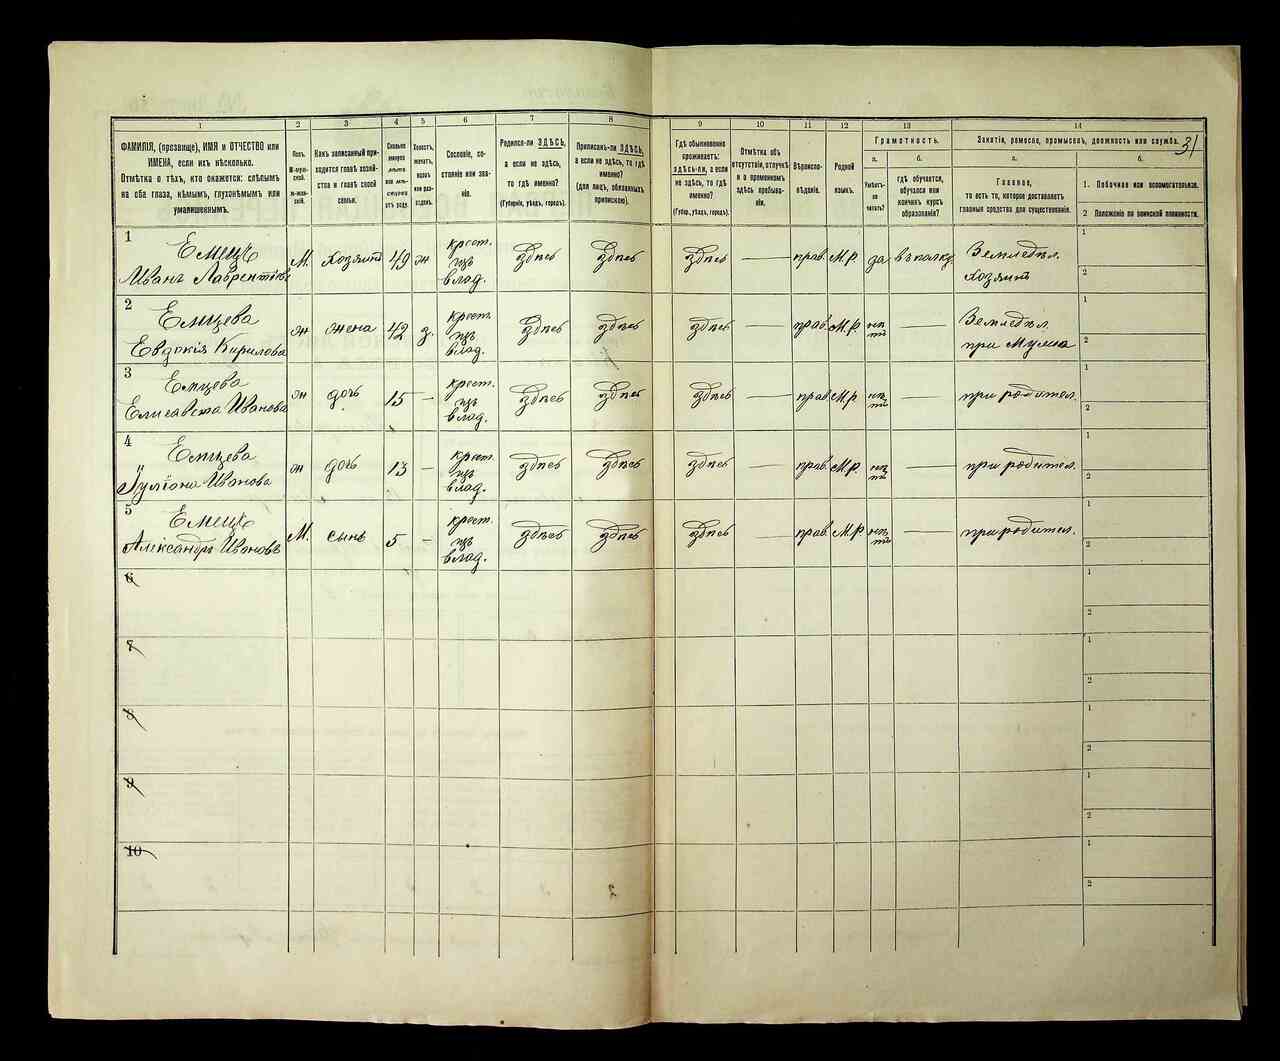 31
1 2 3 4 5 6 7 8 9 10 11 12 13 14
ФАМИЛІЯ, (прозвище), ИМЯ и ОТЧЕСТВО или
ИМЕНА, если ихъ нѣсколько.
Отмѣтка о тѣхъ, кто окажется: слѣпымъ
на оба глаза, нѣмымъ, глухонѣмымъ или
умалишеннымъ.
Полъ.
М-мужской.
Ж-женскій.
Какъ записанный приходится
главѣ хозяйства
и главѣ своей
семьи.
Сколько
минуло
лѣтъ
или мѣсяцевъ
отъ роду.
Холостъ,
женатъ,
вдовъ
или разведенъ.
Сословіе, состояніе
или званіе.
Родился-ли ЗДѢСЬ,
а если не здѣсь,
то гдѣ именно?
(Губернія, уѣздъ, городъ).
Приписанъ-ли ЗДѢСЬ,
а если не здѣсь, то гдѣ
именно?
(для лицъ, обязанныхъ
припискою).
Гдѣ обыкновенно
проживаетъ:
ЗДѢСЬ-ЛИ, а если
не здѣсь, то гдѣ
именно?
(Губер., уѣздъ, городъ).
Отмѣтка объ
отсутствіи, отлучкѣ
и о временномъ
здѣсь пребываніи.
Вѣроисповѣданіе.
Родной
языкъ.
Грамотность.
а.
Умѣетъ-ли
читать?
б.
гдѣ обучается,
обучался или
кончилъ курсъ
образованія?
Занятія, ремесло, промыселъ, должность или служба.
а.
Главное,
то есть то, которое доставляетъ
главныя средства для существованія.
б.
1. Побочное или вспомогательное.
2 Положеніе по воинской повинности.
1 Емецъ
Иванъ Лаврентіевъ М. Хозяинъ 49 ж крест. изъ влад. здѣсь здѣсь здѣсь — прав. М.Р. да въ полку Земледѣл. Хозяинъ 1 2
2 Емцева
Евдокія Кирилова ж жена 42 з. крест. изъ влад. здѣсь здѣсь здѣсь — прав. М.Р. нѣтъ — Земледѣл. при мужѣ 1 2
3 Емцева
Елисавета Иванова ж дочь 15 — крест. изъ влад. здѣсь здѣсь здѣсь — прав. М.Р. нѣтъ — при родител. 1 2
4 Емцева
Іуліана Иванова ж дочь 13 — крест. изъ влад. здѣсь здѣсь здѣсь — прав. М.Р. нѣтъ — при родител. 1 2
5 Емецъ
Александръ Ивановъ М. сынъ 5 — крест. изъ влад. здѣсь здѣсь здѣсь — прав. М.Р. нѣтъ — при родител. 1 2
6 1 2
7 1 2
8 1 2
9 1 2
10 1 2